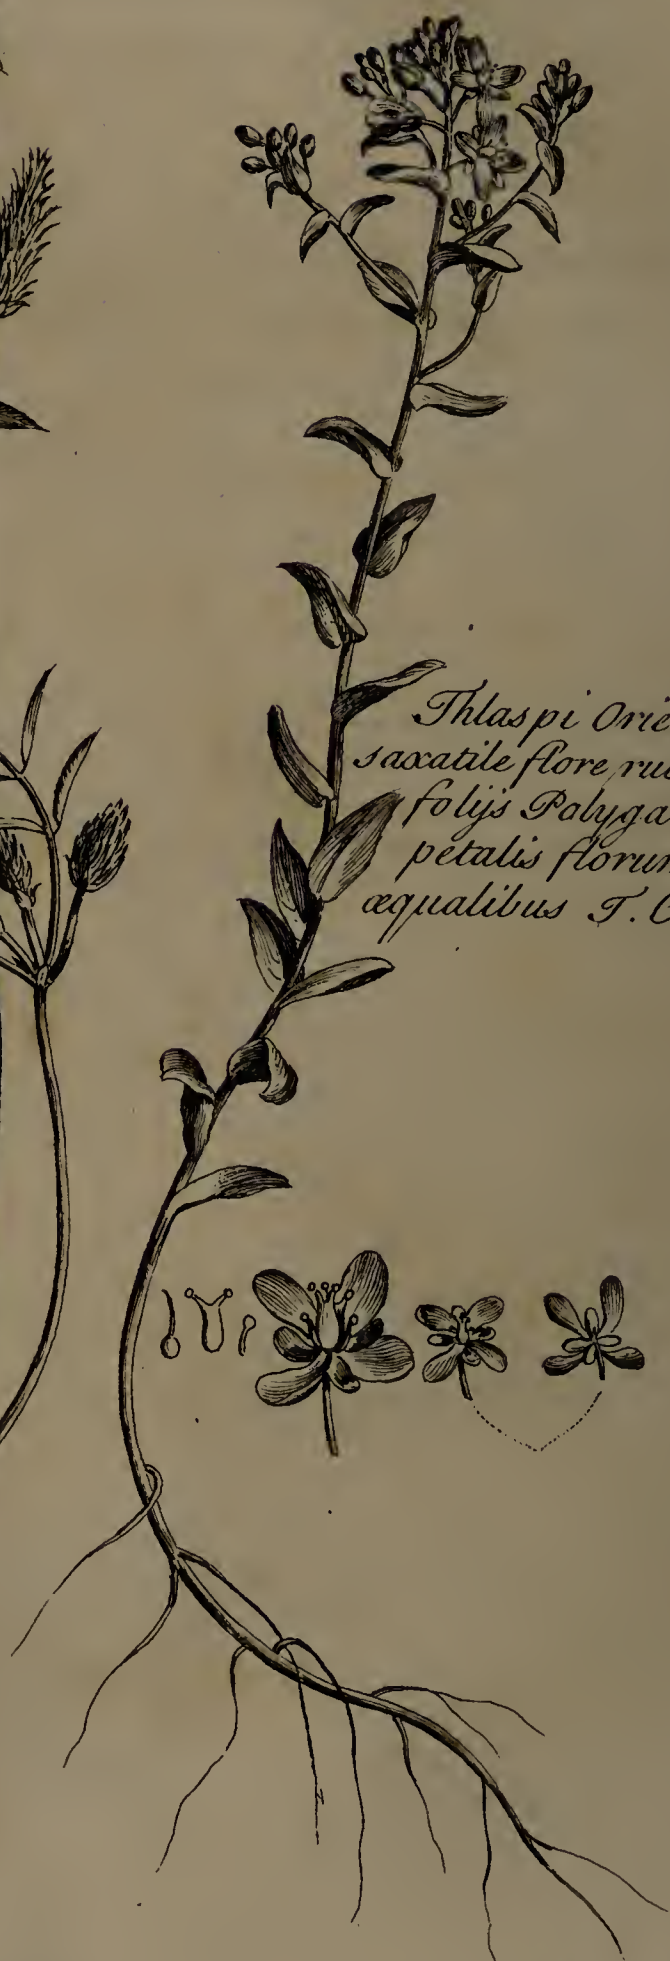 Thlaspi Orie
saxatile flore, ru
folijs Polyga
petalis florum
æqualibus T. C